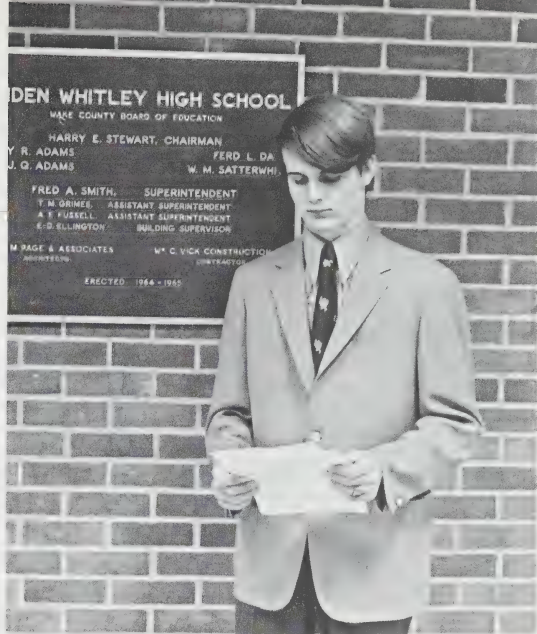 IDEN WHITLEY HIGH SCHOOL
WAKE COUNTY BOARD OF EDUCATION
HARRY E. STEWART, CHAIRMAN
Y R. ADAMS FERD L. DA
J. Q. ADAMS W. M. SATTERWHI
FRED A. SMITH, SUPERINTENDENT
T. M. GRIMES, ASSISTANT SUPERINTENDENT
A. F. FUSSELL, ASSISTANT SUPERINTENDENT
E. D. ELLINGTON BUILDING SUPERVISOR
M PAGE & ASSOCIATES Wm C. VICK CONSTRUCTION
ARCHITECTS CONTRACTOR
ERECTED 1964 - 1965